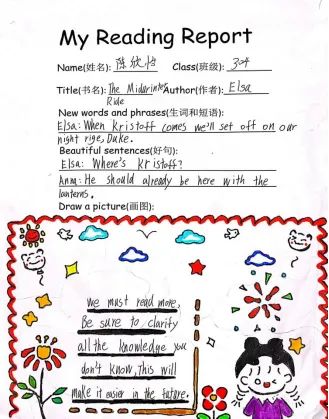 My Reading Report
Name(姓名): 陈欣怡 Class(班级): 304
Title(书名): The Midwinter Author(作者): Elsa
Ride
New words and phrases(生词和短语):
Elsa: When kristoff comes we'll set off on our
night rige, Duke.
Beautiful sentences(好句):
Elsa: Where's kristoff?
Anna: He should already be here with the
lanterns.
Draw a picture(画图):
we must read more,
Be sure to clarity
all the knowledge you
don't know, This will
make it easier in the tature.